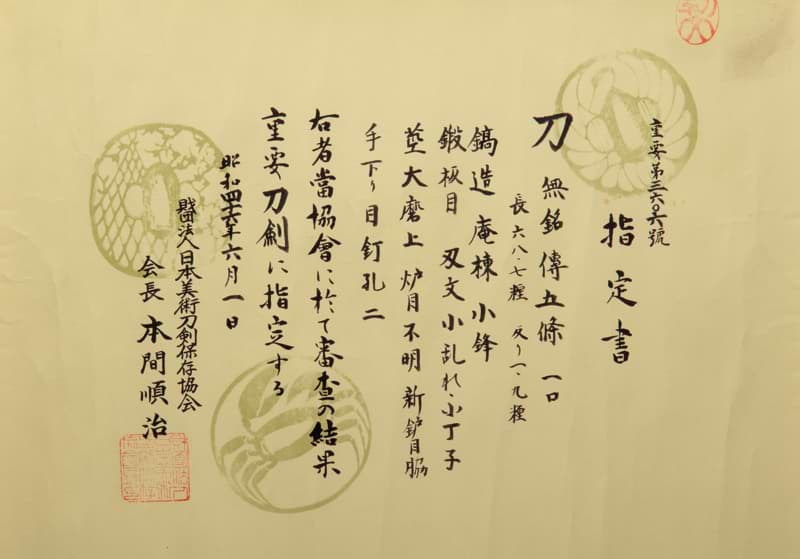 重要第三六〇六號
指定書
刀 無銘 傳五條 一口
長六八・七糎 反り一・九糎
鎬造 庵棟 小鋒
鍛板目 刃文小乱れ・小丁子
茎大磨上 鑢目不明 新鑢目脇
手下り目釘孔二
右者當協會に於て審査の結果
重要刀剣に指定する
昭和四六年六月一日
財団法人日本美術刀剣保存協会
会長 本間順治